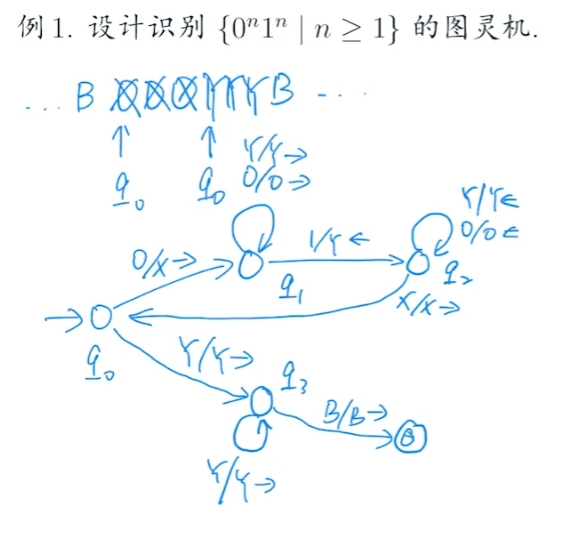 例 1. 设计识别 {0ⁿ1ⁿ | n ≥ 1} 的图灵机.
... B XXXYYYB ...
↑ ↑ Y/Y→
q₀ q₀ 0/0→
Y/Y←
0/0←
0/X→ 1/Y←
q₁ q₂
X/X→
q₀ Y/Y→ q₃
B/B→
Y/Y→